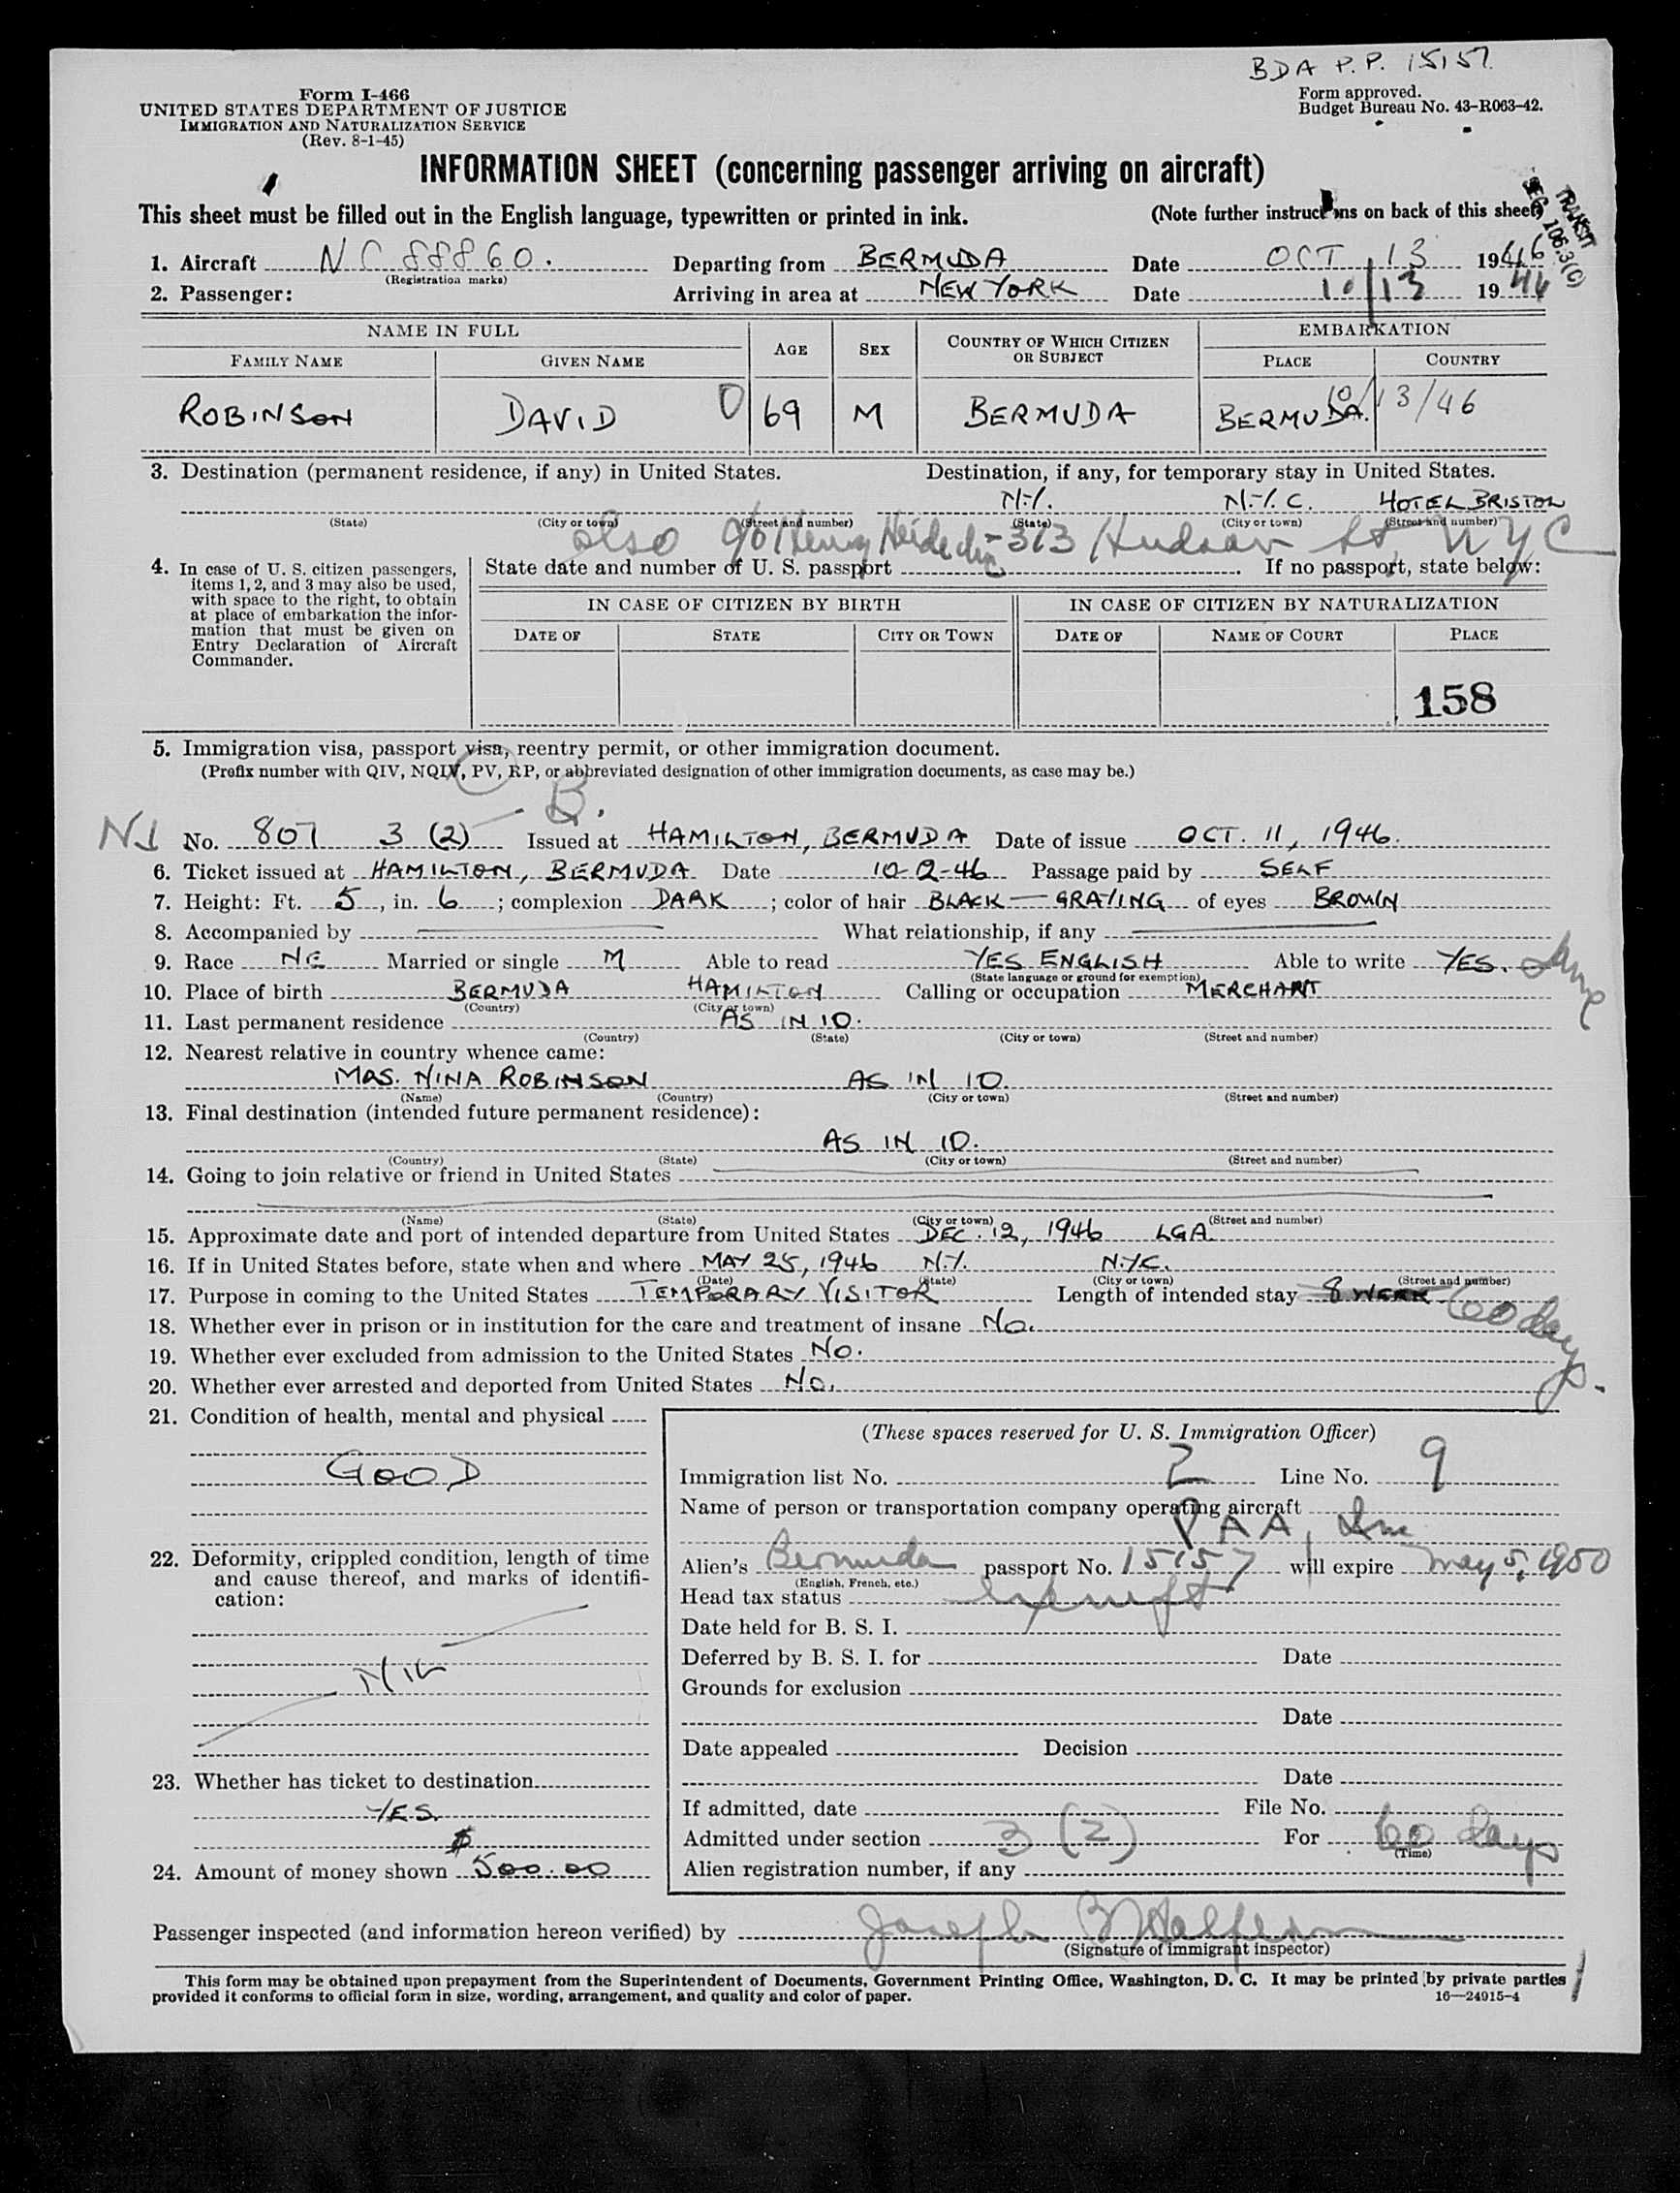 BDA P.P. 15157
Form I-466
UNITED STATES DEPARTMENT OF JUSTICE
IMMIGRATION AND NATURALIZATION SERVICE
(Rev. 8-1-45)
Form approved.
Budget Bureau No. 43-R063-42.
INFORMATION SHEET (concerning passenger arriving on aircraft)
This sheet must be filled out in the English language, typewritten or printed in ink. (Note further instructions on back of this sheet)
TRANSIT
SEC. 106.3(C)
1. Aircraft NC 88860. Departing from BERMUDA Date OCT 13 1946
(Registration marks)
2. Passenger: Arriving in area at NEW YORK Date 10/13 1946
NAME IN FULL AGE SEX COUNTRY OF WHICH CITIZEN OR SUBJECT EMBARKATION
FAMILY NAME GIVEN NAME PLACE COUNTRY
10/13/46
ROBINSON DAVID O 69 M BERMUDA BERMUDA.
3. Destination (permanent residence, if any) in United States. Destination, if any, for temporary stay in United States.
N.Y. N.Y.C. HOTEL BRISTOL
(State) (City or town) (Street and number) (State) (City or town) (Street and number)
also c/o Henry Heide Inc - 313 Hudson St, NYC
4. In case of U. S. citizen passengers, items 1, 2, and 3 may also be used, with space to the right, to obtain at place of embarkation the information that must be given on Entry Declaration of Aircraft Commander.
State date and number of U. S. passport If no passport, state below:
IN CASE OF CITIZEN BY BIRTH IN CASE OF CITIZEN BY NATURALIZATION
DATE OF STATE CITY OR TOWN DATE OF NAME OF COURT PLACE
158
5. Immigration visa, passport visa, reentry permit, or other immigration document.
(Prefix number with QIV, NQIV, PV, RP, or abbreviated designation of other immigration documents, as case may be.)
B.
No. 807 3 (2) Issued at HAMILTON, BERMUDA Date of issue OCT. 11, 1946.
6. Ticket issued at HAMILTON, BERMUDA Date 10-2-46 Passage paid by SELF
7. Height: Ft. 5, in. 6; complexion DARK; color of hair BLACK — GRAYING of eyes BROWN
8. Accompanied by What relationship, if any
9. Race NE Married or single M Able to read YES ENGLISH Able to write YES. Same
(State language or ground for exemption)
10. Place of birth BERMUDA HAMILTON Calling or occupation MERCHANT
(Country) (City or town)
11. Last permanent residence AS IN 10.
(Country) (State) (City or town) (Street and number)
12. Nearest relative in country whence came:
MRS. NINA ROBINSON AS IN 10.
(Name) (Country) (City or town) (Street and number)
13. Final destination (intended future permanent residence):
AS IN 10.
(Country) (State) (City or town) (Street and number)
14. Going to join relative or friend in United States
(Name) (State) (City or town) (Street and number)
15. Approximate date and port of intended departure from United States DEC. 12, 1946 LGA
16. If in United States before, state when and where MAY 25, 1946 N.Y. N.Y.C.
(Date) (State) (City or town) (Street and number)
17. Purpose in coming to the United States TEMPORARY VISITOR Length of intended stay 8 WEEK 60 days.
18. Whether ever in prison or in institution for the care and treatment of insane No.
19. Whether ever excluded from admission to the United States No.
20. Whether ever arrested and deported from United States No.
21. Condition of health, mental and physical
GOOD
22. Deformity, crippled condition, length of time and cause thereof, and marks of identification:
NIL
23. Whether has ticket to destination
YES.
24. Amount of money shown $500.00
(These spaces reserved for U. S. Immigration Officer)
Immigration list No. 2 Line No. 9
Name of person or transportation company operating aircraft
PAA, Inc
Alien's Bermuda passport No. 15157 will expire May 5, 1950
(English, French, etc.)
Head tax status exempt
Date held for B. S. I.
Deferred by B. S. I. for Date
Grounds for exclusion
Date
Date appealed Decision
Date
If admitted, date File No.
Admitted under section 3 (2) For 60 days
(Time)
Alien registration number, if any
Passenger inspected (and information hereon verified) by Joseph
(Signature of immigrant inspector)
This form may be obtained upon prepayment from the Superintendent of Documents, Government Printing Office, Washington, D. C. It may be printed by private parties
provided it conforms to official form in size, wording, arrangement, and quality and color of paper. 16—24915-4